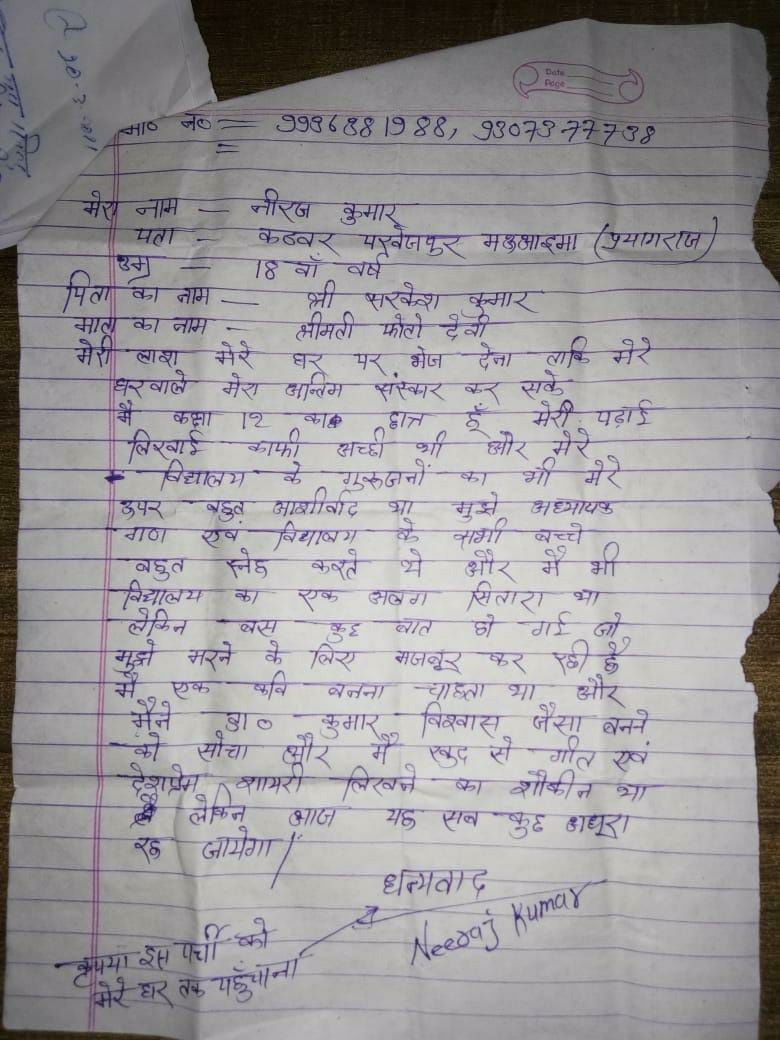 Date
Page
मो० न० = 9936881988, 9307377738
मेरा नाम — नीरज कुमार
पता - कठवर परवेजपुर मऊआइमा (प्रयागराज)
उम्र — 18 वाँ वर्ष
पिता का नाम — श्री सरकेश कुमार
माता का नाम - श्रीमती फोतो देवी
मेरी लाश मेरे घर पर भेज देना ताकि मेरे
घरवाले मेरा अन्तिम संस्कार कर सके
मै कक्षा 12 का छात्र हूँ मेरी पढ़ाई
लिखाई काफी अच्छी थी और मेरे
विद्यालय के गुरूजनों का भी मेरे
उपर बहुत आशीर्वाद था मुझे अध्यापक
गण एवं विद्यालय के सभी बच्चे
बहुत स्नेह करते थे और मै भी
विद्यालय का एक अलग सितारा था
लेकिन बस कुछ बात हो गई जो
मुझे मरने के लिए मजबूर कर रही है
मै एक कवि बनना चाहता था और
मैने डा० कुमार विश्वास जैसा बनने
को सोचा और मै खुद से गीत एवं
देशप्रेम शायरी लिखने का शौकीन था
लेकिन आज यह सब कुछ अधूरा
रह जायेगा।
धन्यवाद
Neeraj Kumar
कृपया इस पर्ची को
मेरे घर तक पहुँचाना